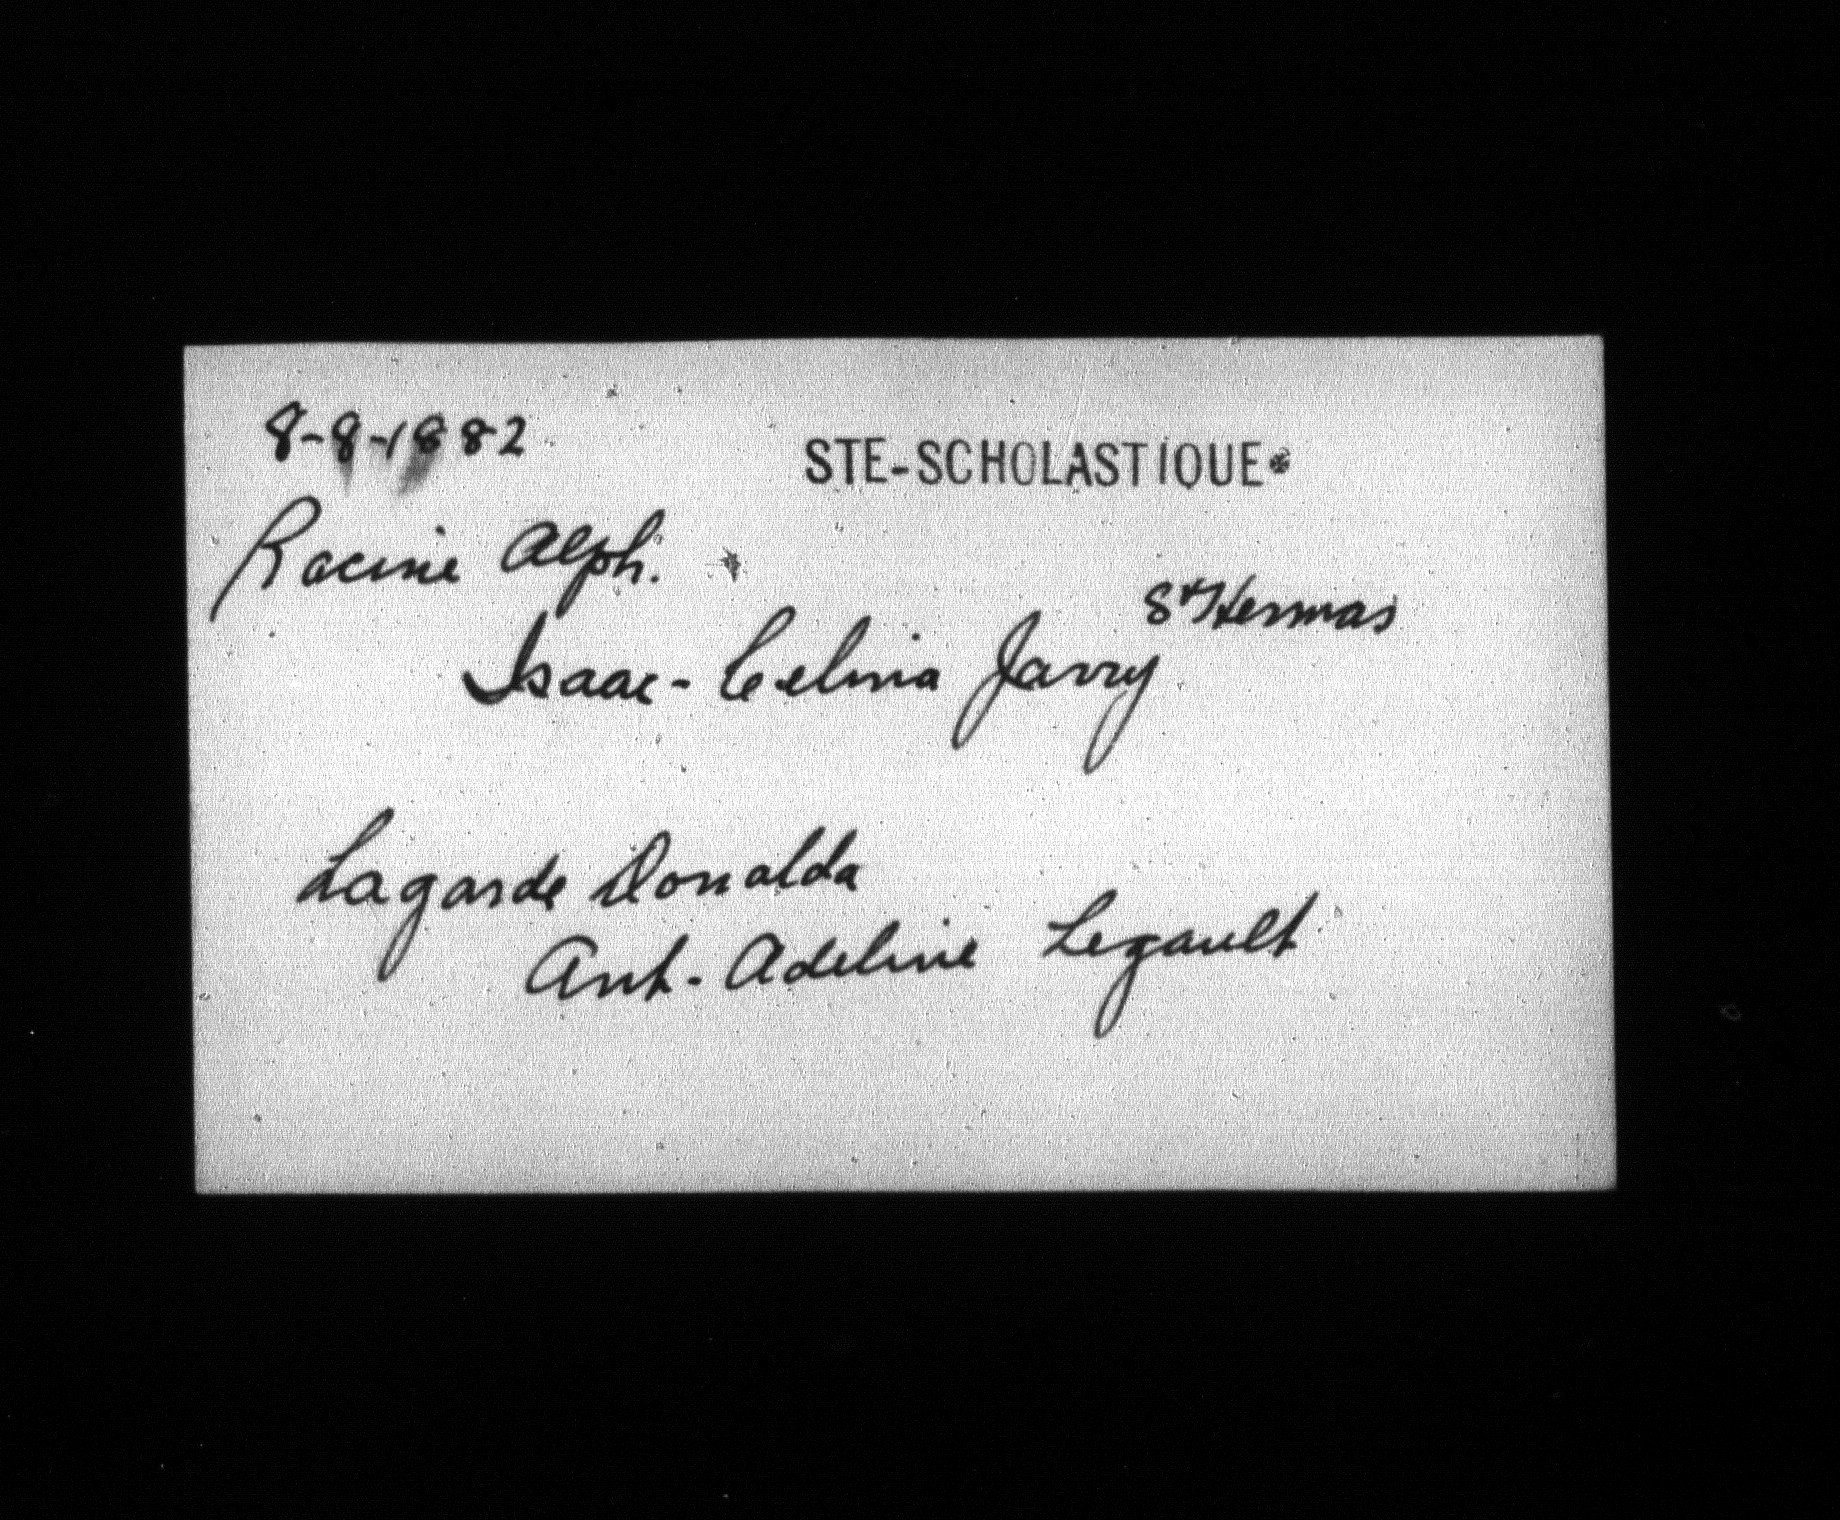 8-8-1882
STE-SCHOLASTIQUE*
Racine Alph.
St Hermas
Isaac - Celina Jarry
Lagarde Donalda
Ant. - Adeline Legault